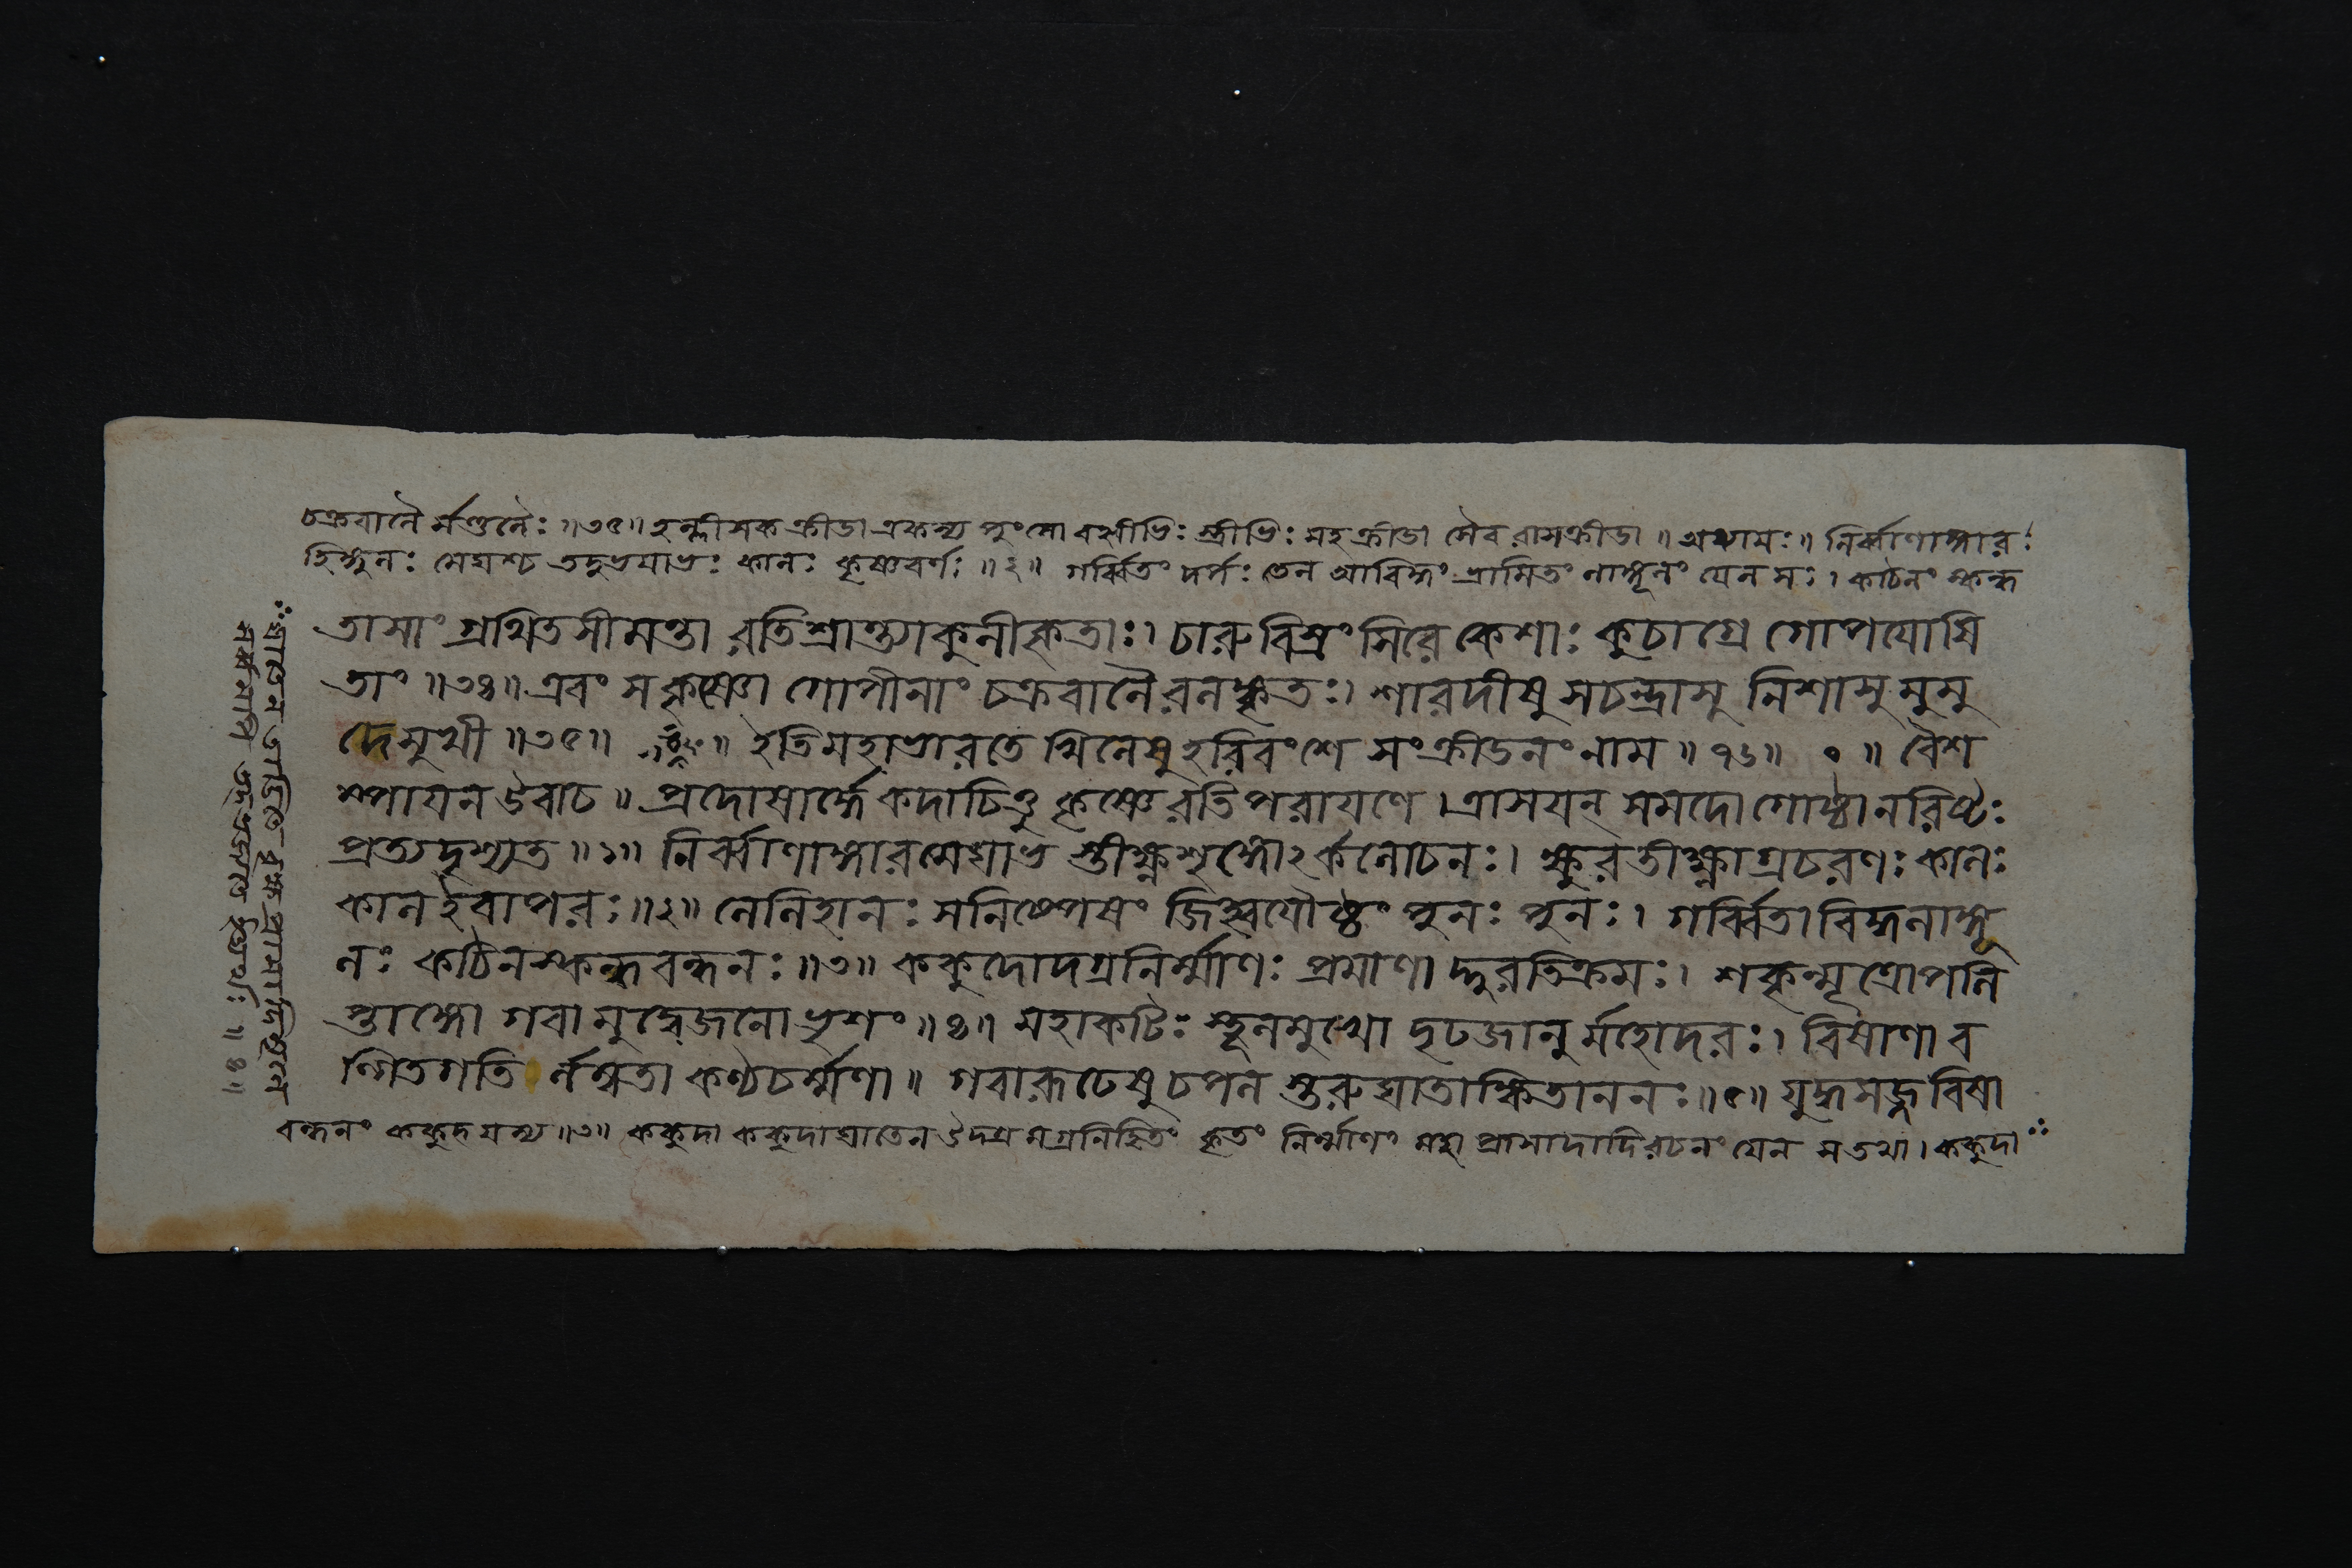 চক্রবালৈর্মণ্ডলৈঃ ॥৩৫॥ হল্লীসকক্রীডা একস্য পুংসো বহ্বীভিঃ স্ত্রীভিঃ সহ ক্রীডা সৈব রাসক্রীডা ॥ অধ্যায়ঃ ॥ নির্ব্বাণাঙ্গার
হিঙ্গুলঃ মেঘশ্চ তদুভয়াভঃ কালঃ কৃষ্ণবর্ণঃ ॥২॥ গর্ব্বিতং দর্পঃ তেন আবিদ্ধং ভ্রামিতং লাঙ্গূলং যেন সঃ। কঠিনং স্কন্ধ
তাসাং গ্রথিতসীমন্তা রতিশ্রান্ত্যাকুলীকৃতাঃ। চারু বিস্রংসিরে কেশাঃ কুচাগ্রে গোপযোষি
তাং ॥৩৪॥ এবং স কৃষ্ণো গোপীনাং চক্রবালৈরলঙ্কৃতঃ। শারদীষু সচন্দ্রাসু নিশাসু মুমু
দে সুখী ॥৩৫॥ ॥ ইতি মহাভারতে খিলেষু হরিবংশে সংক্রীডনং নাম ॥৭৬॥ ॰ ॥ বৈশ
ম্পায়ন উবাচ ॥ প্রদোষার্দ্ধে কদাচিত্তু কৃষ্ণে রতিপরায়ণে। ত্রাসয়ন্ সমদো গোষ্ঠানরিষ্টঃ
প্রত্যদৃশ্যত ॥১॥ নির্ব্বাণাঙ্গারমেঘাভ স্তীক্ষ্ণশৃঙ্গোঽর্কলোচনঃ। ক্ষুরতীক্ষ্ণাগ্রচরণঃ কালঃ
কাল ইবাপরঃ ॥২॥ লেলিহানঃ সনিষ্পেষং জিহ্বয়ৌষ্ঠং পুনঃ পুনঃ। গর্ব্বিতাবিদ্ধলাঙ্গূ
লঃ কঠিনস্কন্ধবন্ধনঃ ॥৩॥ ককুদোদগ্রনির্ম্মাণঃ প্রমাণাদ্দুরতিক্রমঃ। শকৃন্মূত্রোপলি
প্তাঙ্গো গবামুদ্বেজনো ভৃশং ॥৪॥ মহাকটিঃ স্থূলমুখো দৃঢজানুর্মহোদরঃ। বিষাণাব
ল্গিতগতি র্লম্বতা কণ্ঠচর্ম্মণা ॥ গবারূঢেষু চপল স্তরুঘাতাঙ্কিতাননঃ ॥৫॥ যুদ্ধসজ্জবিষা
বন্ধনং ককুদ যস্য ॥৩॥ ককুদা ককুদাঘাতেন উদগ্র নিহিতং কৃতং নির্ম্মাণং প্রাসাদাদিরচনং যেন স তথা। ককুদা